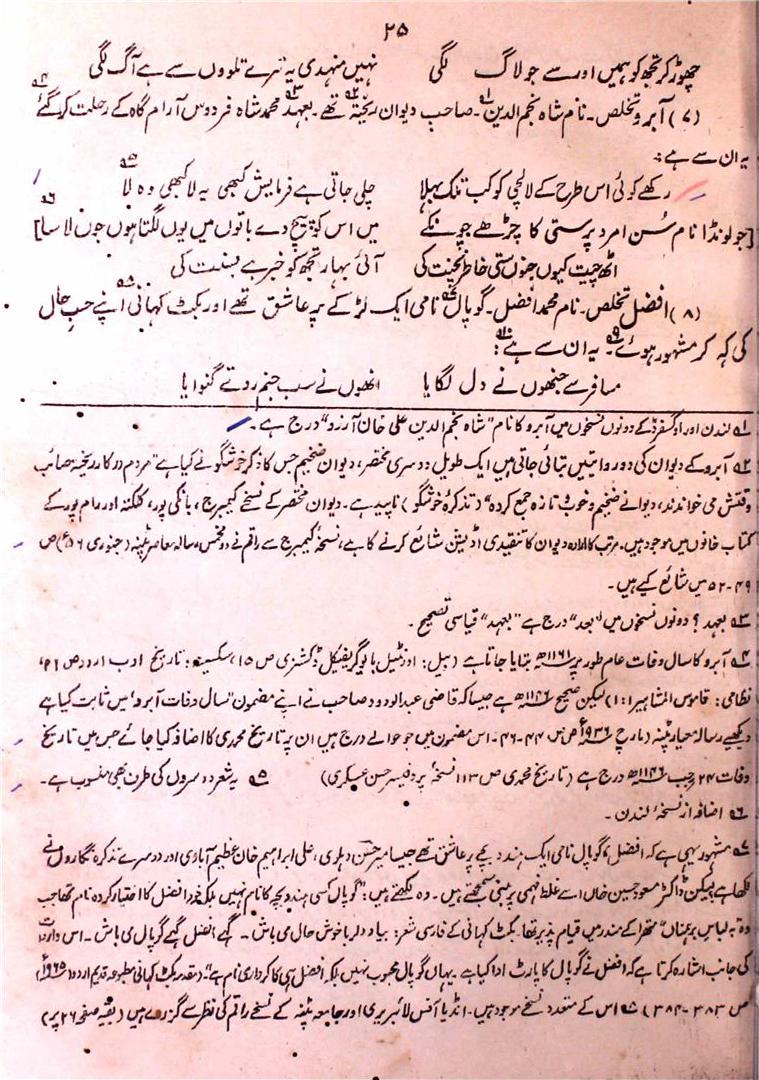 ۲۵
چھوڑ کر تجھ کو ہمیں اور سے جو لاگ لگی نہیں منہدی یہ ترے تلووں سے ہے آگ لگی
(۷) آبرو تخلص۔ نام شاہ نجم الدین۱؎۔ صاحب دیوان ریختہ۲؎ تھے۔ بعہد۳؎ محمد شاہ فردوس آرام گاہ کے رحلت کر گئے۴؎
یہ ان سے ہے:
رکھے کوئی اس طرح کے لالچی کو کب تلک بہلا چلی جاتی ہے فرمایش کبھی یہ لا کبھی وہ لا۵؎
[جو لونڈا نام سُن امرد پرستی کا چڑھے چونکے میں اس کو پیچ دے باتوں میں یوں لگتا ہوں جوں لاسا]۶؎
آئی بہار تجھ کو خبر ہے بسنت کی
(۸) افضل تخلص۔ نام محمد افضل۔ گوپال۷؎ نامی ایک لڑکے پر عاشق تھے اور بکٹ کہانی۸؎ اپنے حسبِ حال
کی کہہ کر مشہور ہوئے۹؎۔ یہ ان سے ہے۱۰؎:
مسافر سے جنھوں نے دل لگایا انھوں نے سب جنم روتے گنوایا
۱؎ لندن اور اوکسفرڈ کے دونوں نسخوں میں آبرو کا نام "شاہ نجم الدین علی خان آرزو" درج ہے۔
۲؎ آبرو کے دیوان کی دو روایتیں بتائی جاتی ہیں ایک طویل دوسری مختصر، دیوان ضخیم جس کا ذکر خوشگو نے کیا ہے "مردم در کار ریختہ صائب
وقتش می خواندند، دیوانے ضخیم و خوب و تازہ جمع کردہ" (تذکرۂ خوشگو) ناپید ہے۔ دیوان مختصر کے نسخے کیمبرج، بانکی پور، کلکتہ اور رام پور کے
کتاب خانوں میں موجود ہیں۔ مرتب کا ارادہ دیوان کا تنقیدی اڈیشن شائع کرنے کا ہے، نسخۂ کیمبرج سے راقم نے دو مخمس رسالہ معاصر پٹنہ (جنوری ۵۶ء) ص
۴۹-۵۲ میں شائع کیے ہیں۔
۳؎ بعہد؟ دونوں نسخوں میں "بعد" درج ہے "بعہد" قیاسی تصحیح۔
۴؎ آبرو کا سال وفات عام طور پر ۱۱۶۱ھ بتایا جاتا ہے (بیل: اورنٹیل بایوگریفیکل ڈکشنری ص ۱۵، سکسینہ: تاریخ ادب اردو ص ۲۱،
نظامی: قاموس المشاہیر ۱:۱) لیکن صحیح ۱۱۴۶ھ ہے جیسا کہ قاضی عبدالودود صاحب نے اپنے مضمون "سال وفات آبرو" میں ثابت کیا ہے
دیکھیے رسالہ معیار پٹنہ (مارچ ۱۹۳۶ء) ص ص ۴۴-۴۶۔ اس مضمون میں جو حوالے درج ہیں ان پہ تاریخ محمدی کا اضافہ کیا جائے جس میں تاریخ
وفات ۲۴ رجب ۱۱۴۶ھ درج ہے (تاریخ محمدی ص ۱۱۳ نسخۂ پروفیسر حسن عسکری) ۵؎ یہ شعر دوسروں کی طرف بھی منسوب ہے۔
۶؎ اضافہ از نسخۂ لندن۔
۷؎ مشہور یہی ہے کہ افضل، گوپال نامی ایک ہندو بچے پر عاشق تھے جیسا میر حسن دہلوی، علی ابراہیم خان عظیم آبادی اور دوسرے تذکرہ نگاروں نے
لکھا ہے لیکن ڈاکٹر مسعود حسین خاں اسے غلط فہمی پر مبنی سمجھتے ہیں۔ وہ لکھتے ہیں: "گوپال کسی ہندو بچہ کا نام نہیں بلکہ خود افضل کا اختیار کردہ نام تھا جب
وہ بہ لباسِ برہمناں متھرا کے مندر میں قیام پذیر تھا۔ بکٹ کہانی کے فارسی شعر: بیاد دلربا خوش حال می باش۔ گہے افضل گہے گوپال می باش۔ اس واردات
کی جانب اشارہ کرتا ہے کہ افضل نے گوپال کا پارٹ ادا کیا ہے۔ یہاں گوپال محبوب نہیں بلکہ افضل ہی کا کرداری نام ہے"۔ (مقدمہ بکٹ کہانی مطبوعہ قدیم اردو ۱۹۶۵ء)
ص ۳۸۳-۳۸۴) ۸؎ اس کے متعدد نسخے موجود ہیں۔ انڈیا آفس لائبریری اور جامعہ پٹنہ کے نسخے راقم کی نظر سے گزرے ہیں (بقیہ صفحہ ۲۶ پر)